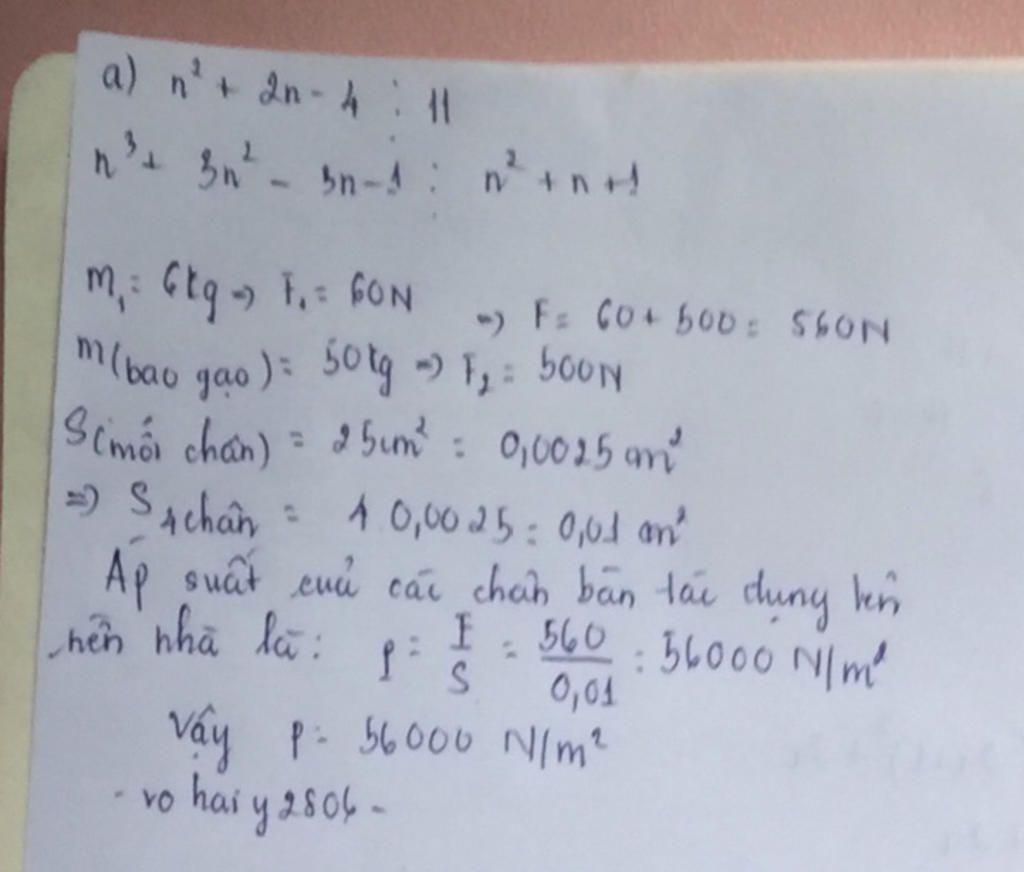 a) n² + 2n - 4 ⋮ 11
n³ + 3n² - 3n - 1 ⋮ n² + n + 1
m₁ = 6kg => F₁ = 60N
=> F = 60 + 500 = 560N
m(bao gạo) = 50kg => F₂ = 500N
S(mỗi chân) = 25cm² = 0,0025 m²
=> S 4 chân = 4 0,0025 = 0,01 m²
Áp suất của các chân bàn tác dụng lên
nền nhà là: p = F/S = 560/0,01 = 56000 N/m²
Vậy p = 56000 N/m²
- vo hai y 2804 -